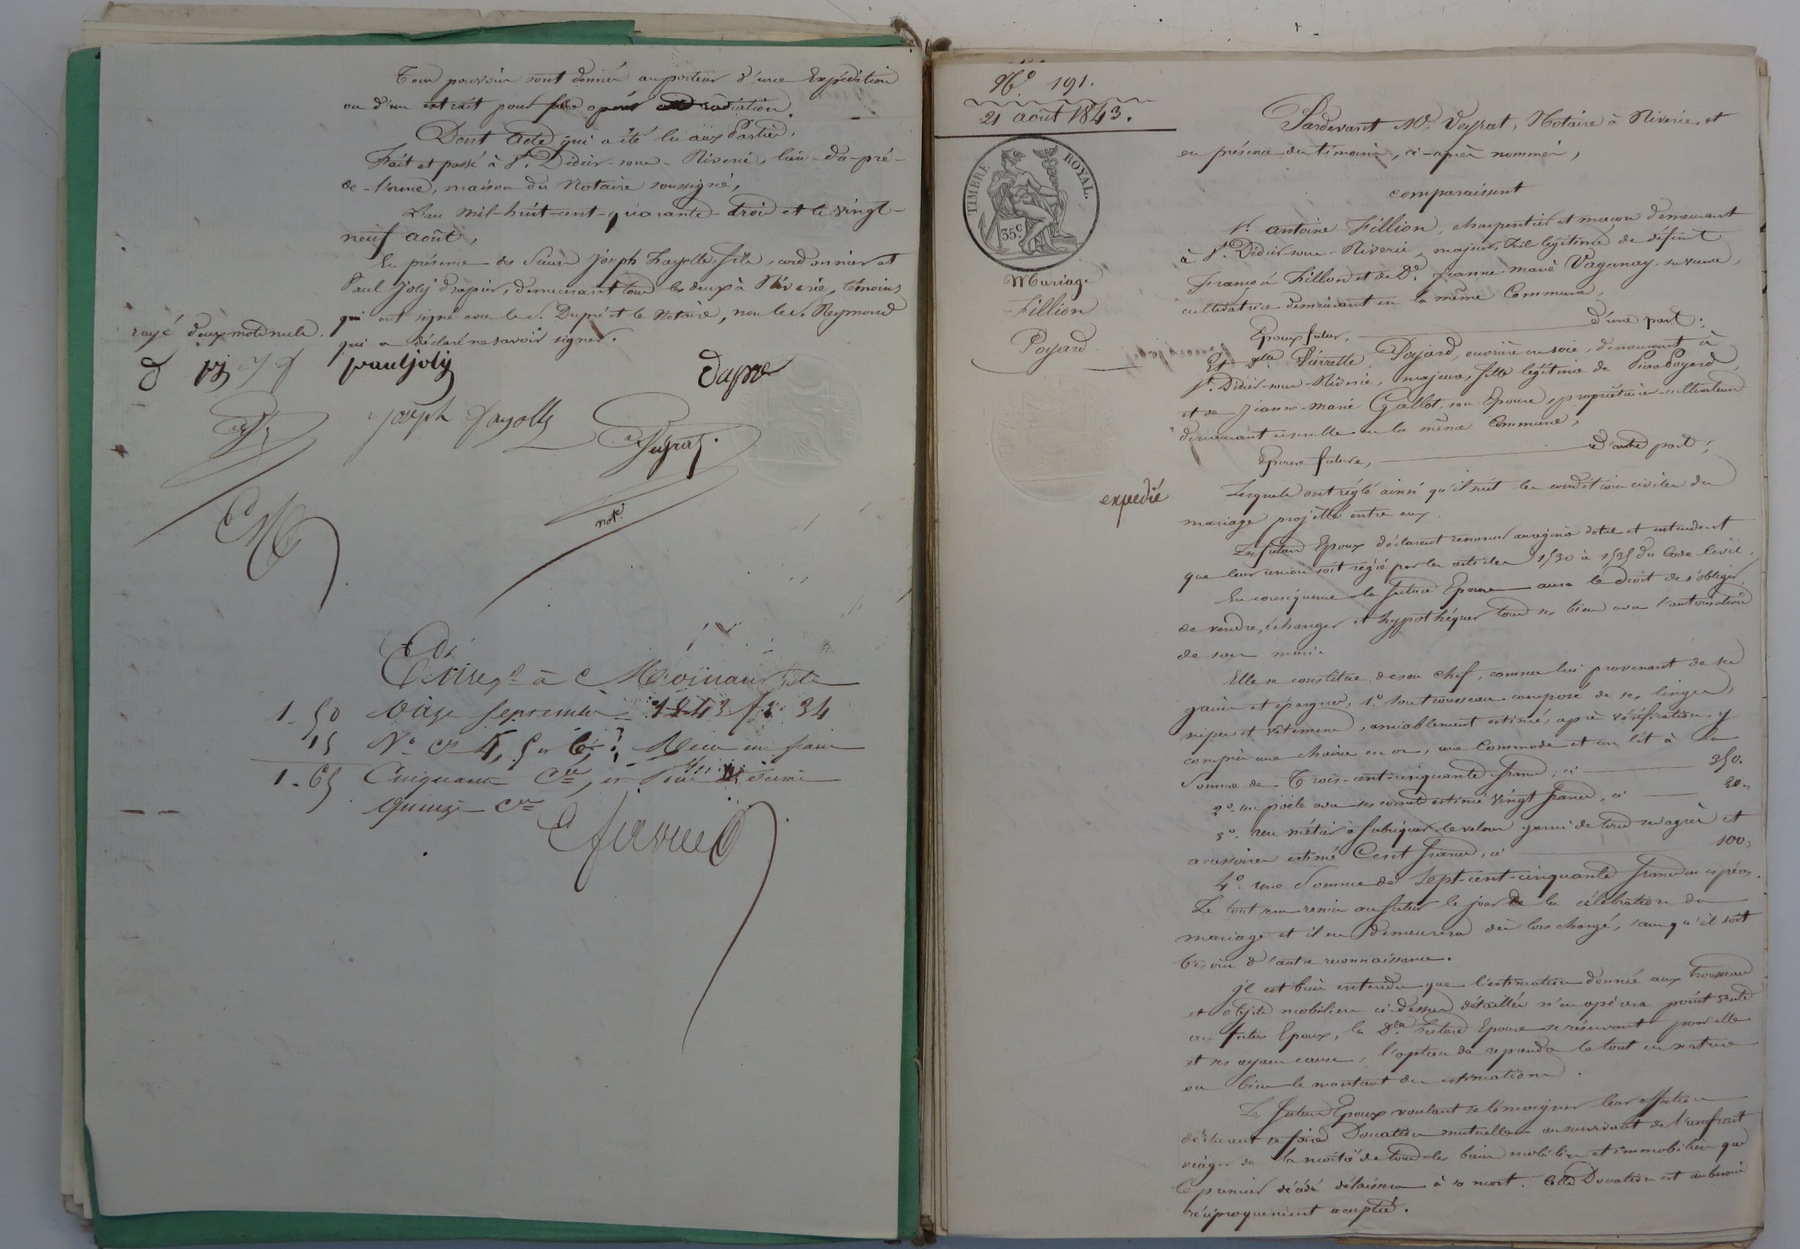 Tous pouvoirs sont donnés au porteur d'une Expédition
ou d'un extrait pour faire opérer radiation.
Dont Acte qui a été lu aux Parties,
Fait et passé à St. Didier-sous-Riverie, lieu du-pré-
de-l'orme, maison du Notaire soussigné,
L'an mil-huit-cent-quarante-trois et le vingt-
neuf août,
En présence des Sieurs Joseph Fayolle, fils, cordonnier et
Paul Joly drapier, demeurant tous les deux à Riverie, témoins
qui ont signé avec le S. Dupré et le Notaire, non le S. Reymond
qui a déclaré ne savoir signer.
rayé deux mots nuls.
D PJ JF
paul joly
Dupré
joseph fayolle
Veyrat
note
Enregé à
1-50 onze septembre 1843 fo 34
15 No cs 4, 5 et 6; Reçu un franc
1-65 Cinquante cmes, et
quinze cmes
No. 191.
21 août 1843.
TIMBRE ROYAL.
35 c
Mariage
Fillion
Poyard
expédié
Pardevant Me. Veyrat, Notaire à Riverie, et
en présence des témoins, ci-après nommés,
comparaissent
Sr. antoine Fillion, charpentier et maçon demeurant
à St. Didier-sous-Riverie, majeur, fils légitime de défunt
François Fillion et de De. Jeanne-marie Vaganay, sa veuve,
cultivatrice demeurant en la même Commune,
Epoux futur, d'une part;
Et Dlle Pierrette Poyard, ouvrière en soie, demeurant à
St. Didier-sous-Riverie, majeure, fille légitime de Pierre Poyard,
et de Jeanne-Marie Gallot, son Epouse, propriétaires-cultivateurs
demeurant ensemble en la même Commune,
Epouse future, d'autre part;
Lesquels ont réglé ainsi qu'il suit les conditions civiles du
mariage projetté entre eux.
Les futurs Epoux déclarent renoncer au régime dotal et entendent
que leur union soit régie par les articles 1530 à 1535 du Code Civil.
En conséquence la future Epouse aura le droit de s'obliger,
de vendre, échanger et hypothéquer tous ses biens avec l'autorisation
de son mari.
Elle se constitue de son chef, comme lui provenant de ses
gains et épargnes, 1o. son trousseau composé de ses linges,
nipes et vêtements, amiablement estimés, après vérification, y
compris une chaine en or, une Commode et un lit à la
Somme de Trois-cent-cinquante francs, ci 350.
2o. un poële avec ses cornets estimé vingt francs, ci 20.
3o. un métier à fabriquer le velours garni de tous ses agrès et
accessoires estimé Cent francs, ci 100.
4o. une Somme de Sept-cent-cinquante francs en espèces.
Le tout sera remis au futur le jour de la célébration du
mariage et il en demeurera dès lors chargé, sans qu'il soit
besoin d'autre reconnaissance.
Il est bien entendu que l'estimation donnée aux trousseau
et objets mobiliers ci-dessus détaillés n'en opérera point vente
au futur Epoux, la Dite Future Epouse se réservant pour elle
et ses ayans cause, l'option de reprendre le tout en nature
ou bien le montant des estimations.
Les futurs Epoux voulant se témoigner leur affection
déclarent se faire Donation mutuelle au survivant de l'usufruit
viager de la moitié de tous les biens mobiliers et immobiliers que
le premier décédé délaissera à sa mort. Cette Donation est au besoin
réciproquement acceptée.